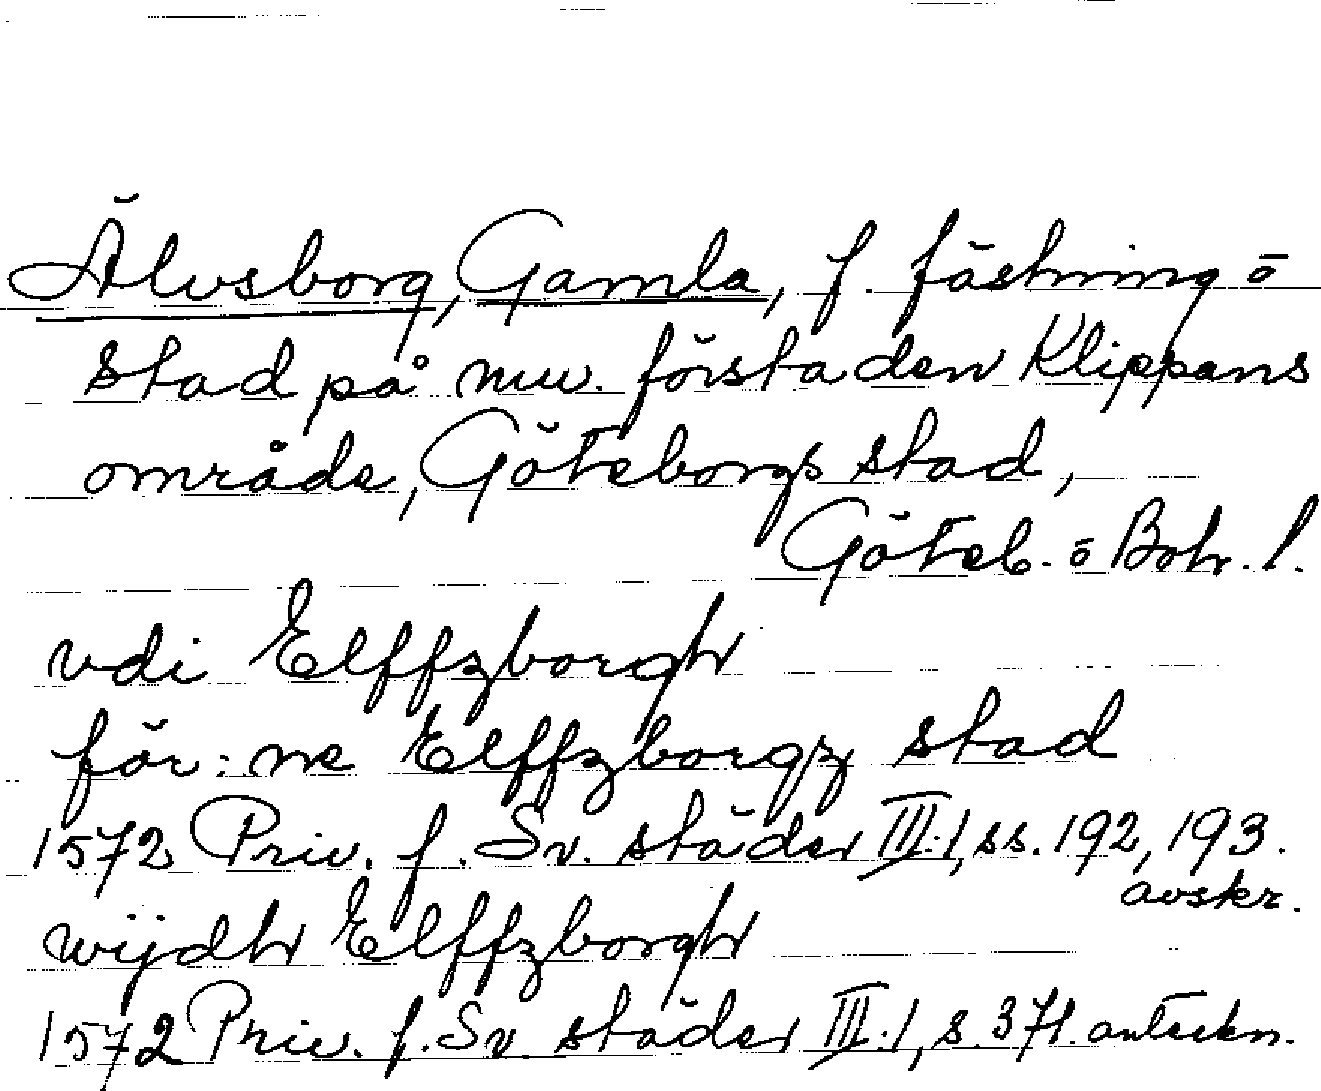 Älvsborg, Gamla, f. fästning o
stad på nuv. förstaden Klippans
område, Göteborgs stad,
Göteb. o Boh. l.
vdi Elffzborgh
för:ne Elffzborgz stad
1572 Priv. f. Sv. städer III:1, ss. 192, 193.
avskr.
wijdh Elffzborgh
1572 Priv. f. Sv. städer III:1, s. 371. anteckn.